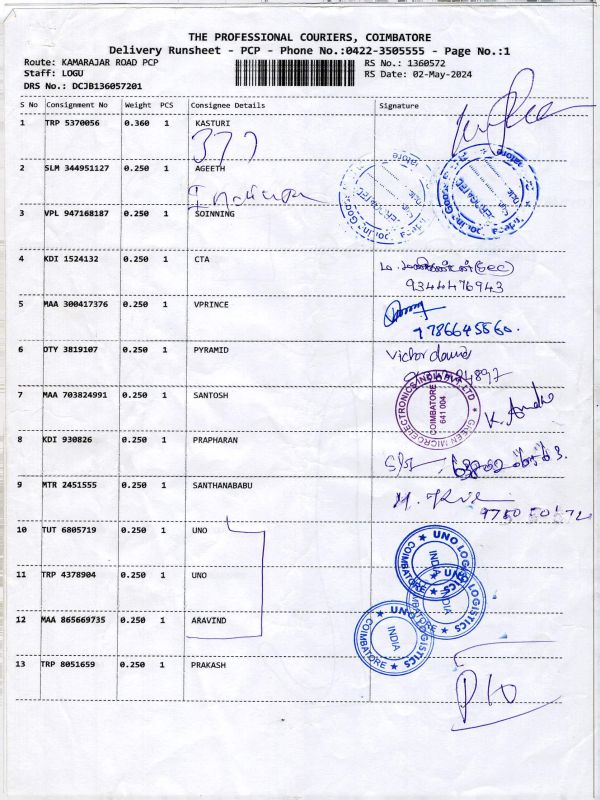 THE PROFESSIONAL COURIERS, COIMBATORE
Delivery Runsheet - PCP - Phone No.:0422-3505555 - Page No.:1
Route: KAMARAJAR ROAD PCP
Staff: LOGU
DRS No.: DCJB136057201
RS No.: 1360572
RS Date: 02-May-2024
S No Consignment No Weight PCS Consignee Details Signature
1 TRP 5370056 0.360 1 KASTURI
377
2 SLM 344951127 0.250 1 AGEETH
3 VPL 947168187 0.250 1 SOINNING
4 KDI 1524132 0.250 1 CTA
9344476943
5 MAA 300417376 0.250 1 VPRINCE
9786645560.
6 OTY 3819107 0.250 1 PYRAMID
Victor david
7 MAA 703824991 0.250 1 SANTOSH
GREEN MICROELECTRONICS INDIA PVT LTD
COIMBATORE
641 004
8 KDI 930826 0.250 1 PRAPHARAN
9 MTR 2451555 0.250 1 SANTHANABABU
10 TUT 6805719 0.250 1 UNO
UNO LOGISTICS COIMBATORE INDIA
11 TRP 4378904 0.250 1 UNO
UNO LOGISTICS COIMBATORE INDIA
12 MAA 865669735 0.250 1 ARAVIND
UNO LOGISTICS COIMBATORE INDIA
13 TRP 8051659 0.250 1 PRAKASH